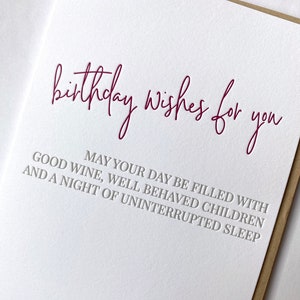 birthday wishes for you
MAY YOUR DAY BE FILLED WITH
GOOD WINE, WELL BEHAVED CHILDREN
AND A NIGHT OF UNINTERRUPTED SLEEP